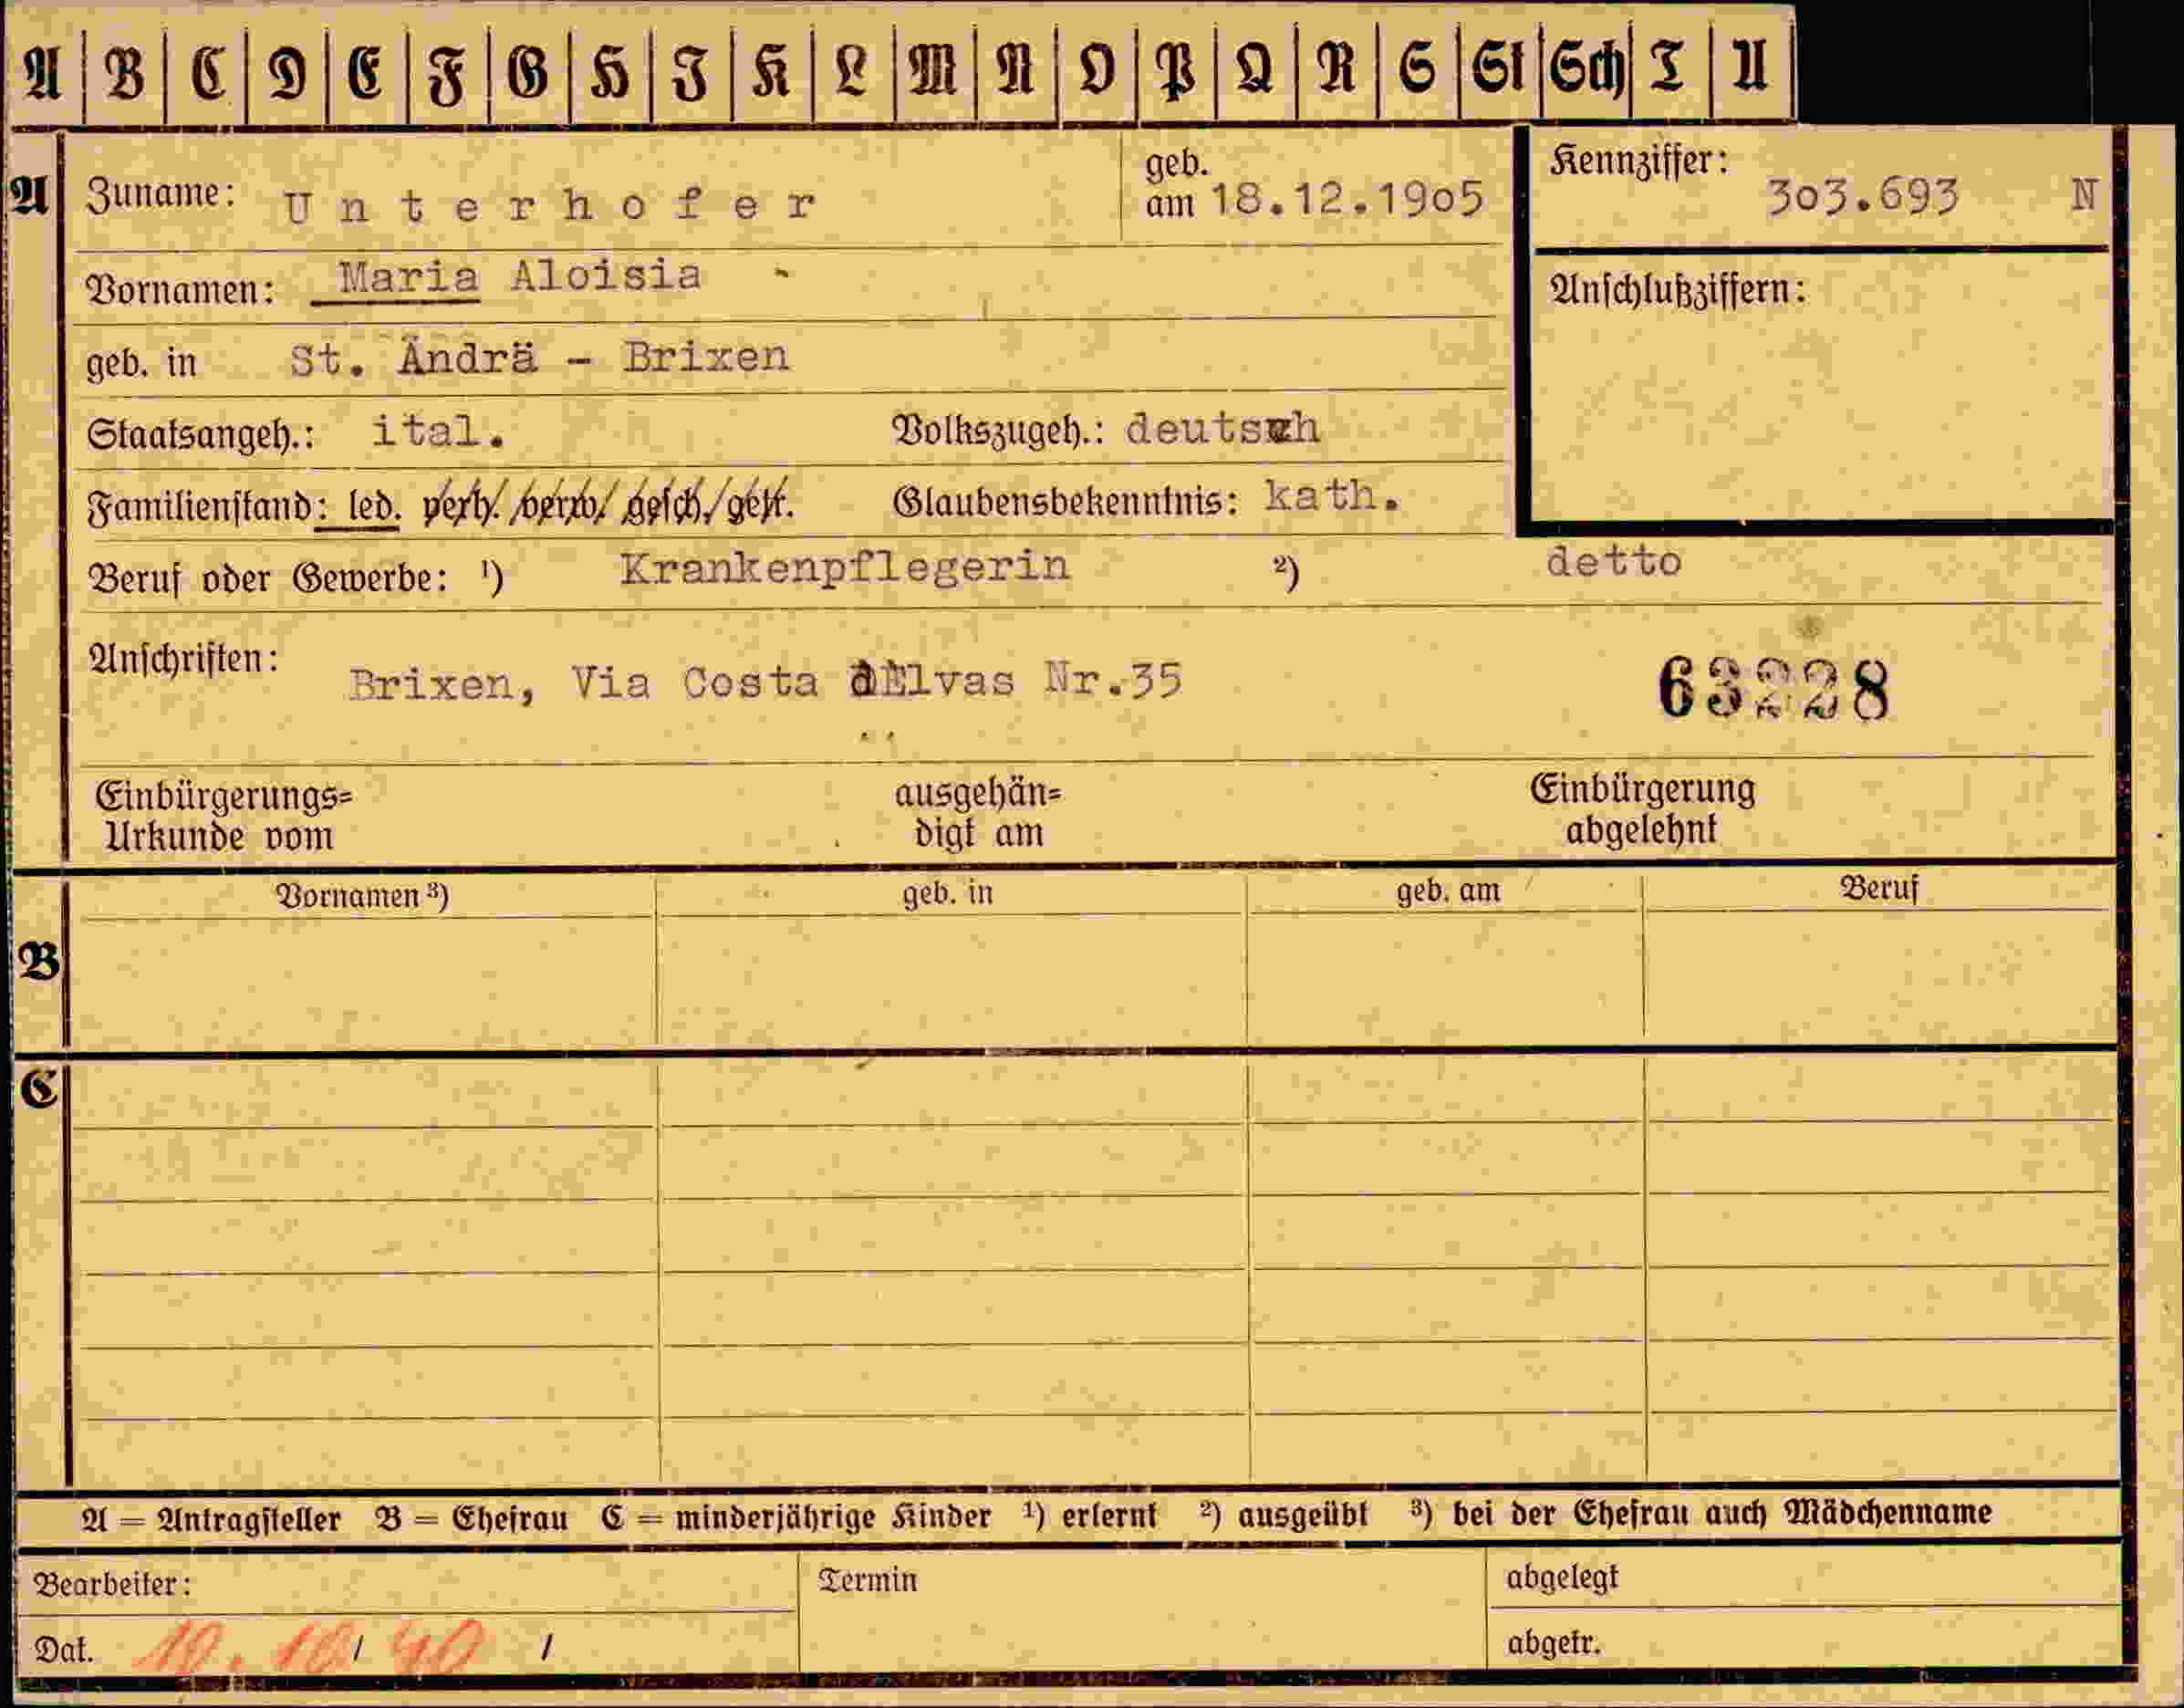 A B C D E F G H I K L M N O P Q R S St Sch T U
A
Zuname: Unterhofer geb. am 18.12.1905 Kennziffer: 303.693 N
Vornamen: Maria Aloisia Anschlußziffern:
geb. in St. Andrä - Brixen
Staatsangeh.: ital. Volkszugeh.: deutsch
Familienstand: led. verh. / verw. / gesch. / getr. Glaubensbekenntnis: kath.
Beruf oder Gewerbe: ¹) Krankenpflegerin ²) detto
Anschriften: Brixen, Via Costa dElvas Nr.35 63228
Einbürgerungs= ausgehän= Einbürgerung
Urkunde vom digt am abgelehnt
Vornamen ³) geb. in geb. am Beruf
B
C
A = Antragsteller B = Ehefrau C = minderjährige Kinder ¹) erlernt ²) ausgeübt ³) bei der Ehefrau auch Mädchenname
Bearbeiter: Termin abgelegt
Dat. 10. 10/ 40 / abgetr.